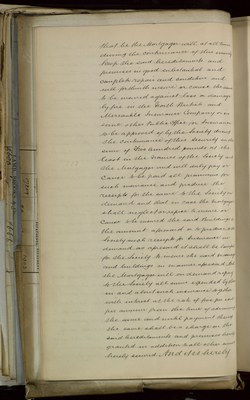 that he the Mortgagor will at all times
during the continuance of this security
keep the said hereditaments and
premises in good substantial and
complete repair and condition and
will forthwith insure or cause the same
to be insured against loss or damage
by fire in the North British and
Mercantile Insurance Company or in
some other Public Office for Insurance
to be approved of by the Society during
the continuance of this security in a
sum of hundred pounds at the
least in the names of the Society and
the Mortgagor and will duly pay or
cause to be paid all premiums for
such insurance and produce the
receipts for the same to the Society on
demand and that in case the Mortgagor
shall neglect or refuse to insure or
cause to be insured the said buildings in
the amount aforesaid or to produce to the
Society such receipt for Insurance on
demand as aforesaid it shall be lawful
for the Society to insure the said premises
and buildings in manner aforesaid And
the Mortgagor will on demand repay
to the Society all sums expended by them
in and about such insurance together
with interest at the rate of five per cent
per annum from the time of advancing
the same and until payment thereof
the same shall be a charge on the
said hereditaments and premises
granted in addition to all other moneys
hereby secured And it is hereby